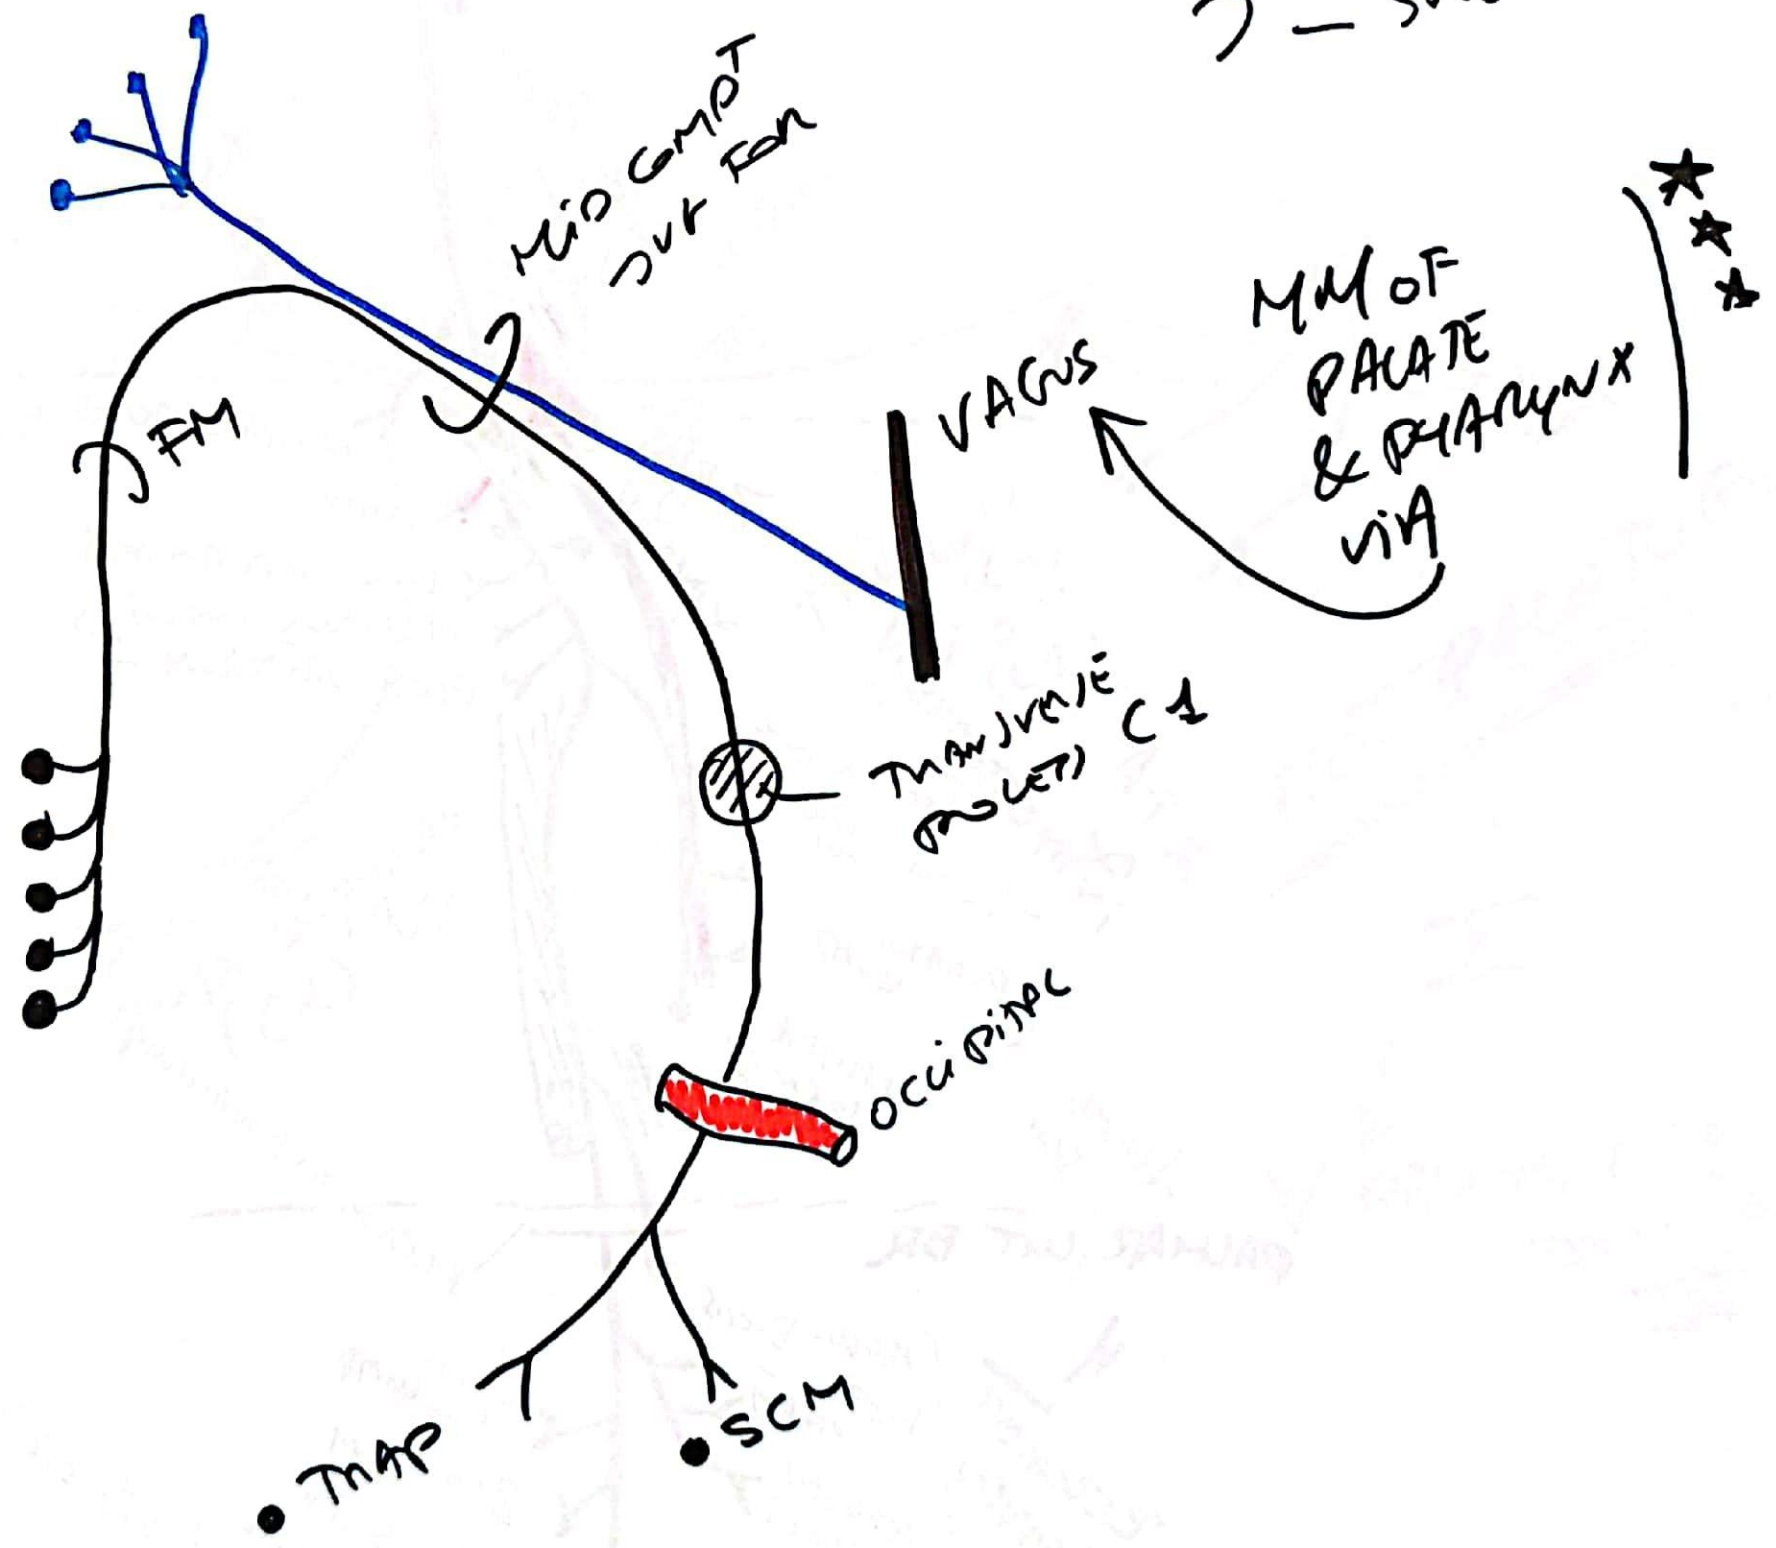 MiD COMPT
JUF FOR
FM
VAGUS
MM OF
PALATE
& PHARYNX
ViA
TRANSVERSE
PROCESS C1
OCCIPITAL
SCM
TRAP